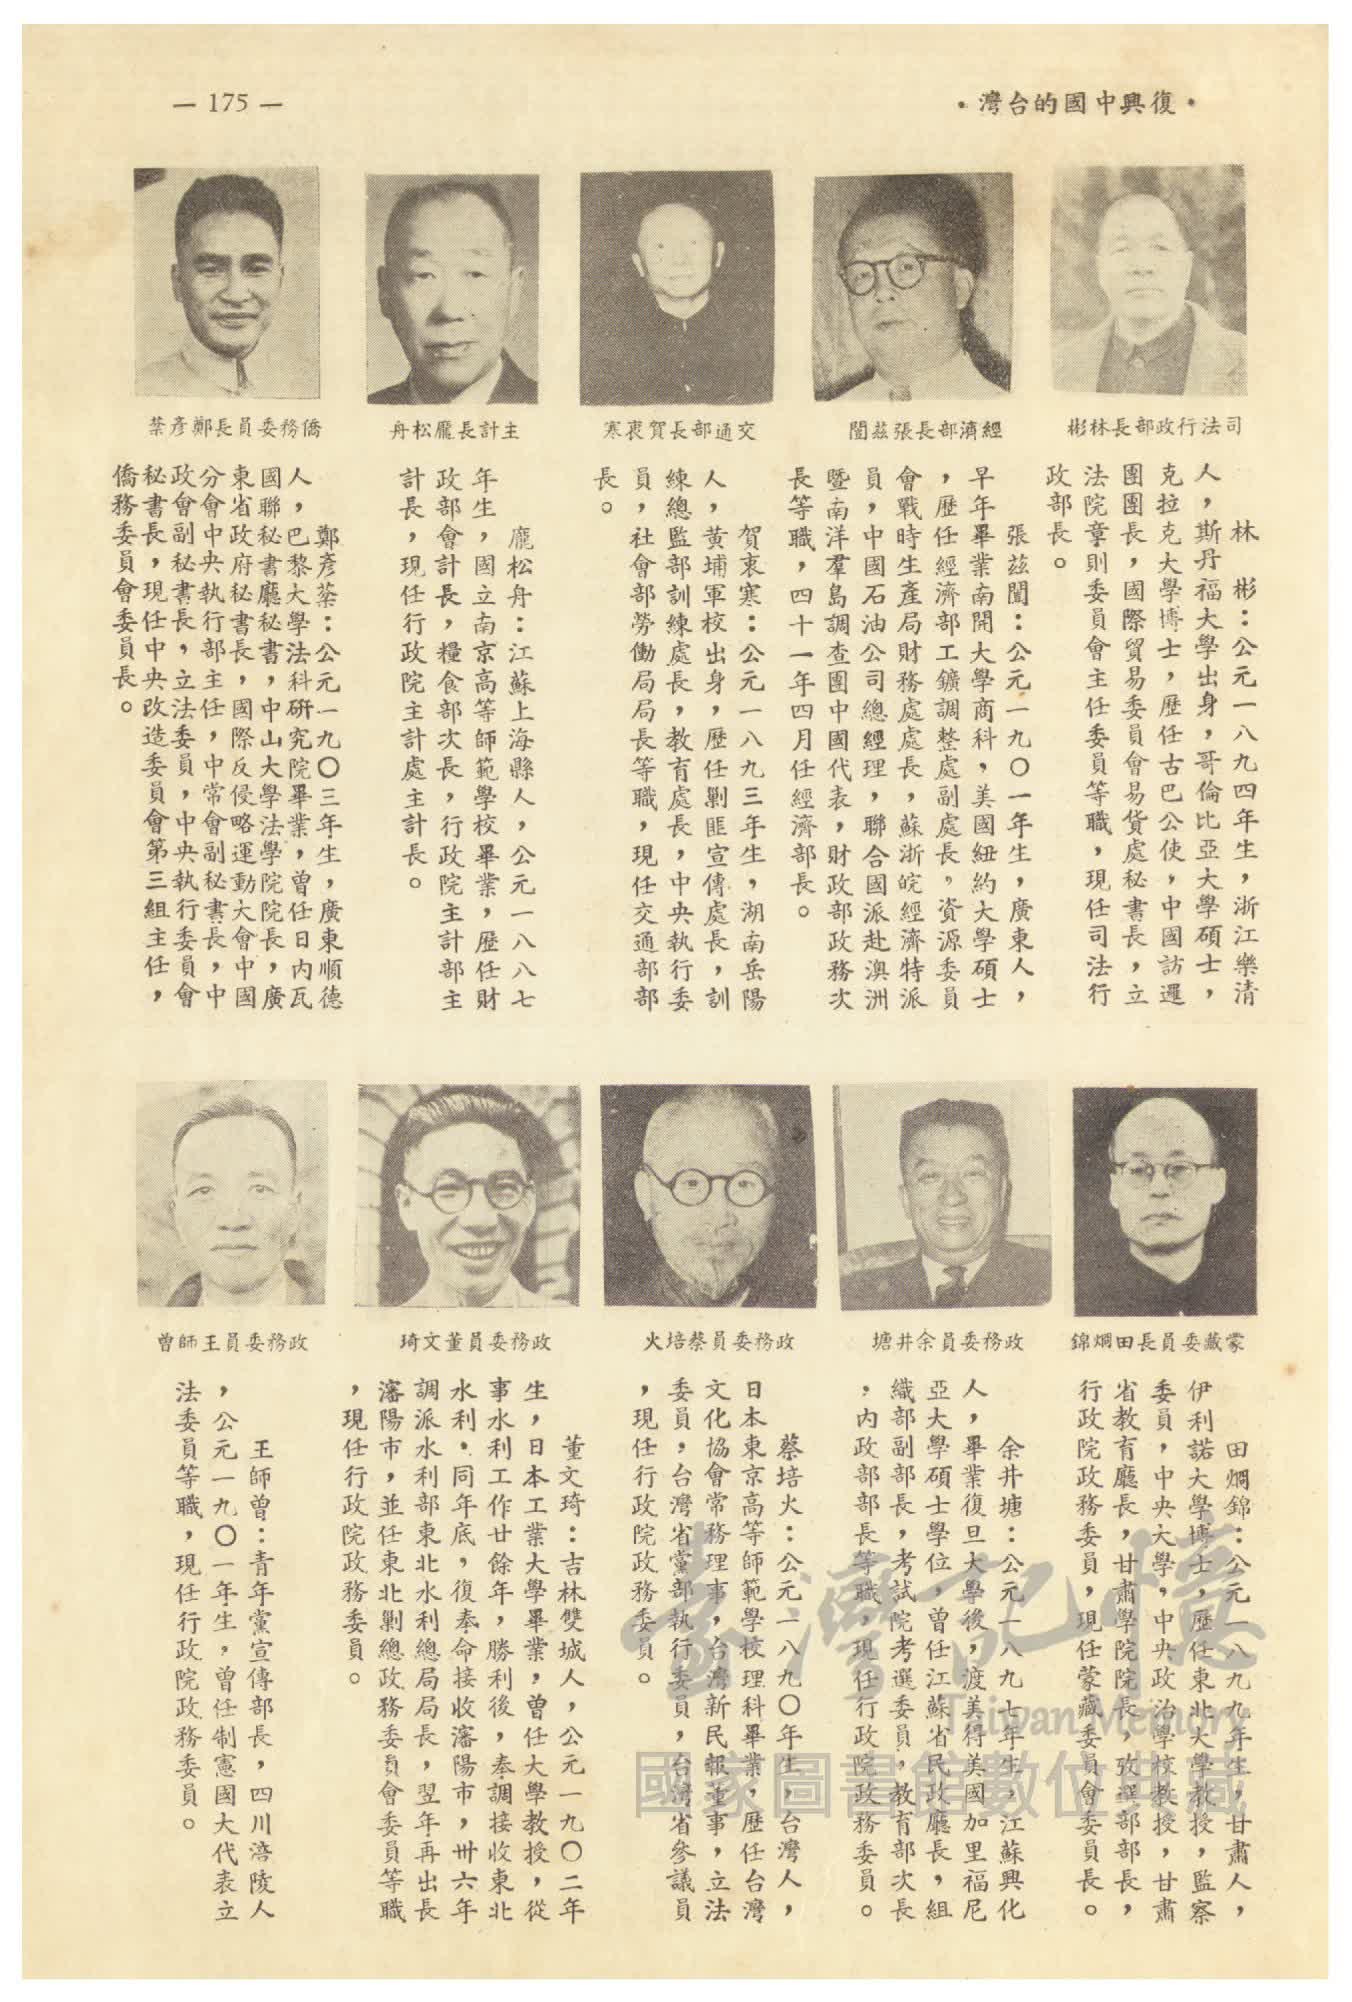 — 175 —
·復興中國的台灣·
司法行政部長林彬
經濟部長張茲闓
交通部長賀衷寒
主計長龐松舟
僑務委員長鄭彥棻
林　彬：公元一八九四年生，浙江樂清
人，斯丹福大學出身，哥倫比亞大學碩士，
克拉克大學博士，歷任古巴公使，中國訪暹
團團長，國際貿易委員會易貨處秘書長，立
法院章則委員會主任委員等職，現任司法行
政部長。
張茲闓：公元一九〇一年生，廣東人，
早年畢業南開大學商科，美國紐約大學碩士
，歷任經濟部工鑛調整處副處長。資源委員
會戰時生產局財務處處長，蘇浙皖經濟特派
員，中國石油公司總經理，聯合國派赴澳洲
暨南洋羣島調查團中國代表，財政部政務次
長等職，四十一年四月任經濟部長。
賀衷寒：公元一八九三年生，湖南岳陽
人，黃埔軍校出身，歷任剿匪宣傳處長，訓
練總監部訓練處長，教育處長，中央執行委
員，社會部勞働局局長等職，現任交通部部
長。
龐松舟：江蘇上海縣人，公元一八八七
年生，國立南京高等師範學校畢業，歷任財
政部會計長，糧食部次長，行政院主計部主
計長，現任行政院主計處主計長。
鄭彥棻：公元一九〇三年生，廣東順德
人，巴黎大學法科研究院畢業，曾任日內瓦
國聯秘書廳秘書，中山大學法學院院長，廣
東省政府秘書長，國際反侵略運動大會中國
分會中央執行部主任，中常會副秘書長，中
政會副秘書長，立法委員，中央執行委員會
秘書長，現任中央改造委員會第三組主任，
僑務委員會委員長。
蒙藏委員長田烱錦
政務委員余井塘
政務委員蔡培火
政務委員董文琦
政務委員王師曾
田烱錦：公元一八九九年生，甘肅人，
伊利諾大學博士，歷任東北大學教授，監察
委員，中央大學，中央政治學校教授，甘肅
省教育廳長，甘肅學院院長，攷選部部長，
行政院政務委員，現任蒙藏委員會委員長。
余井塘：公元一八九七年生，江蘇興化
人，畢業復旦大學後，渡美得美國加里福尼
亞大學碩士學位，曾任江蘇省民政廳長，組
織部副部長，考試院考選委員，教育部次長
，內政部部長等職，現任行政院政務委員。
蔡培火：公元一八九〇年生，台灣人，
日本東京高等師範學校理科畢業，歷任台灣
文化協會常務理事，台灣新民報董事，立法
委員，台灣省黨部執行委員，台灣省參議員
，現任行政院政務委員。
董文琦：吉林雙城人，公元一九〇二年
生，日本工業大學畢業，曾任大學教授，從
事水利工作廿餘年，勝利後，奉調接收東北
水利，同年底，復奉命接收瀋陽市，卅六年
調派水利部東北水利總局局長，翌年再出長
瀋陽市，並任東北剿總政務委員會委員等職
，現任行政院政務委員。
王師曾：青年黨宣傳部長，四川涪陵人
，公元一九〇一年生，曾任制憲國大代表立
法委員等職，現任行政院政務委員。
臺灣記憶
Taiwan Memory
國家圖書館數位典藏